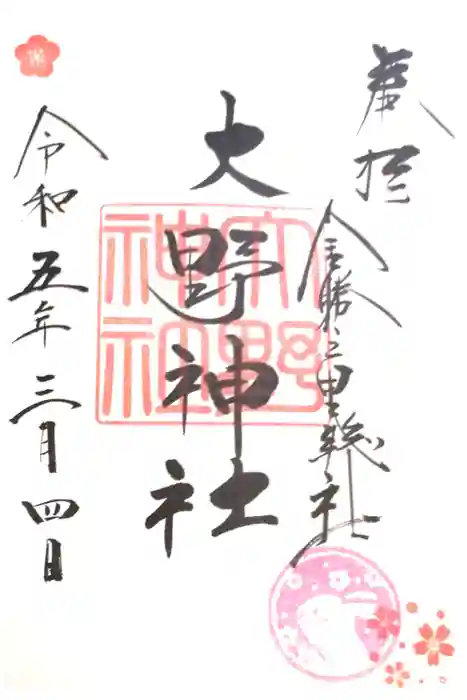 奉拝
今勝三里総社
大野神社
大野神社
令和五年三月四日